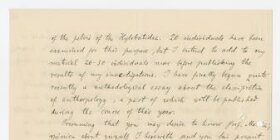 of the pelvis of the Hylobatides. 20 individuals have been
examined for this purpose but I intend to add to my
material 20-30 individuals more before publishing the
results of my investigations. I have partly begun quite
recently a methodological essay about the classification
of anthropology, a part of which will be published
during the course of this year.
Presuming that you may desire to know prof.
opinion about myself I herewith send you his general